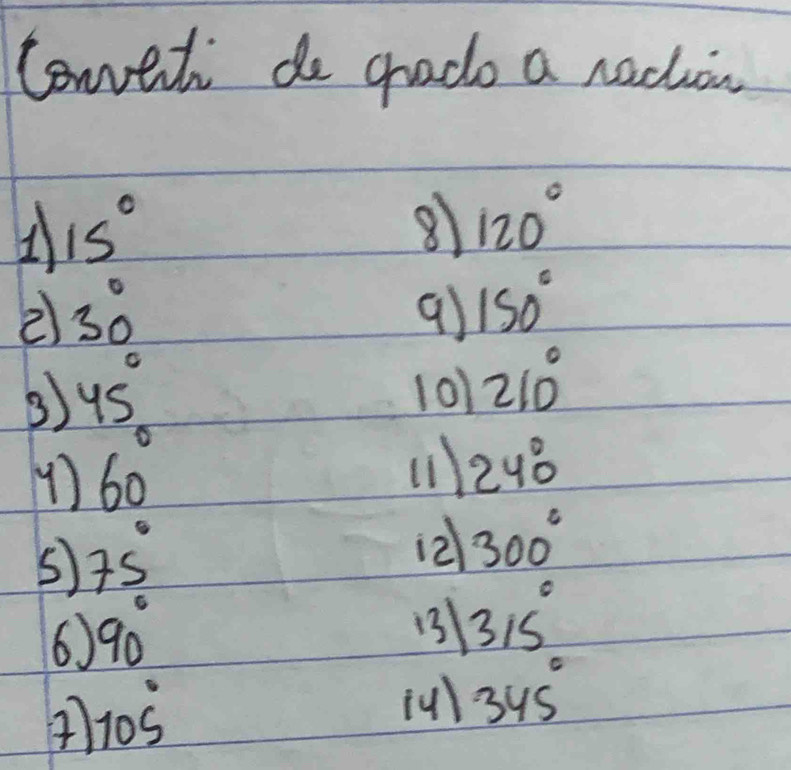 Converti de grado a radian
1) 15°
2) 30°
3) 45°
4) 60°
5) 75°
6) 90°
7) 105°
8) 120°
9) 150°
10) 210°
11) 240°
12) 300°
13) 315°
14) 345°